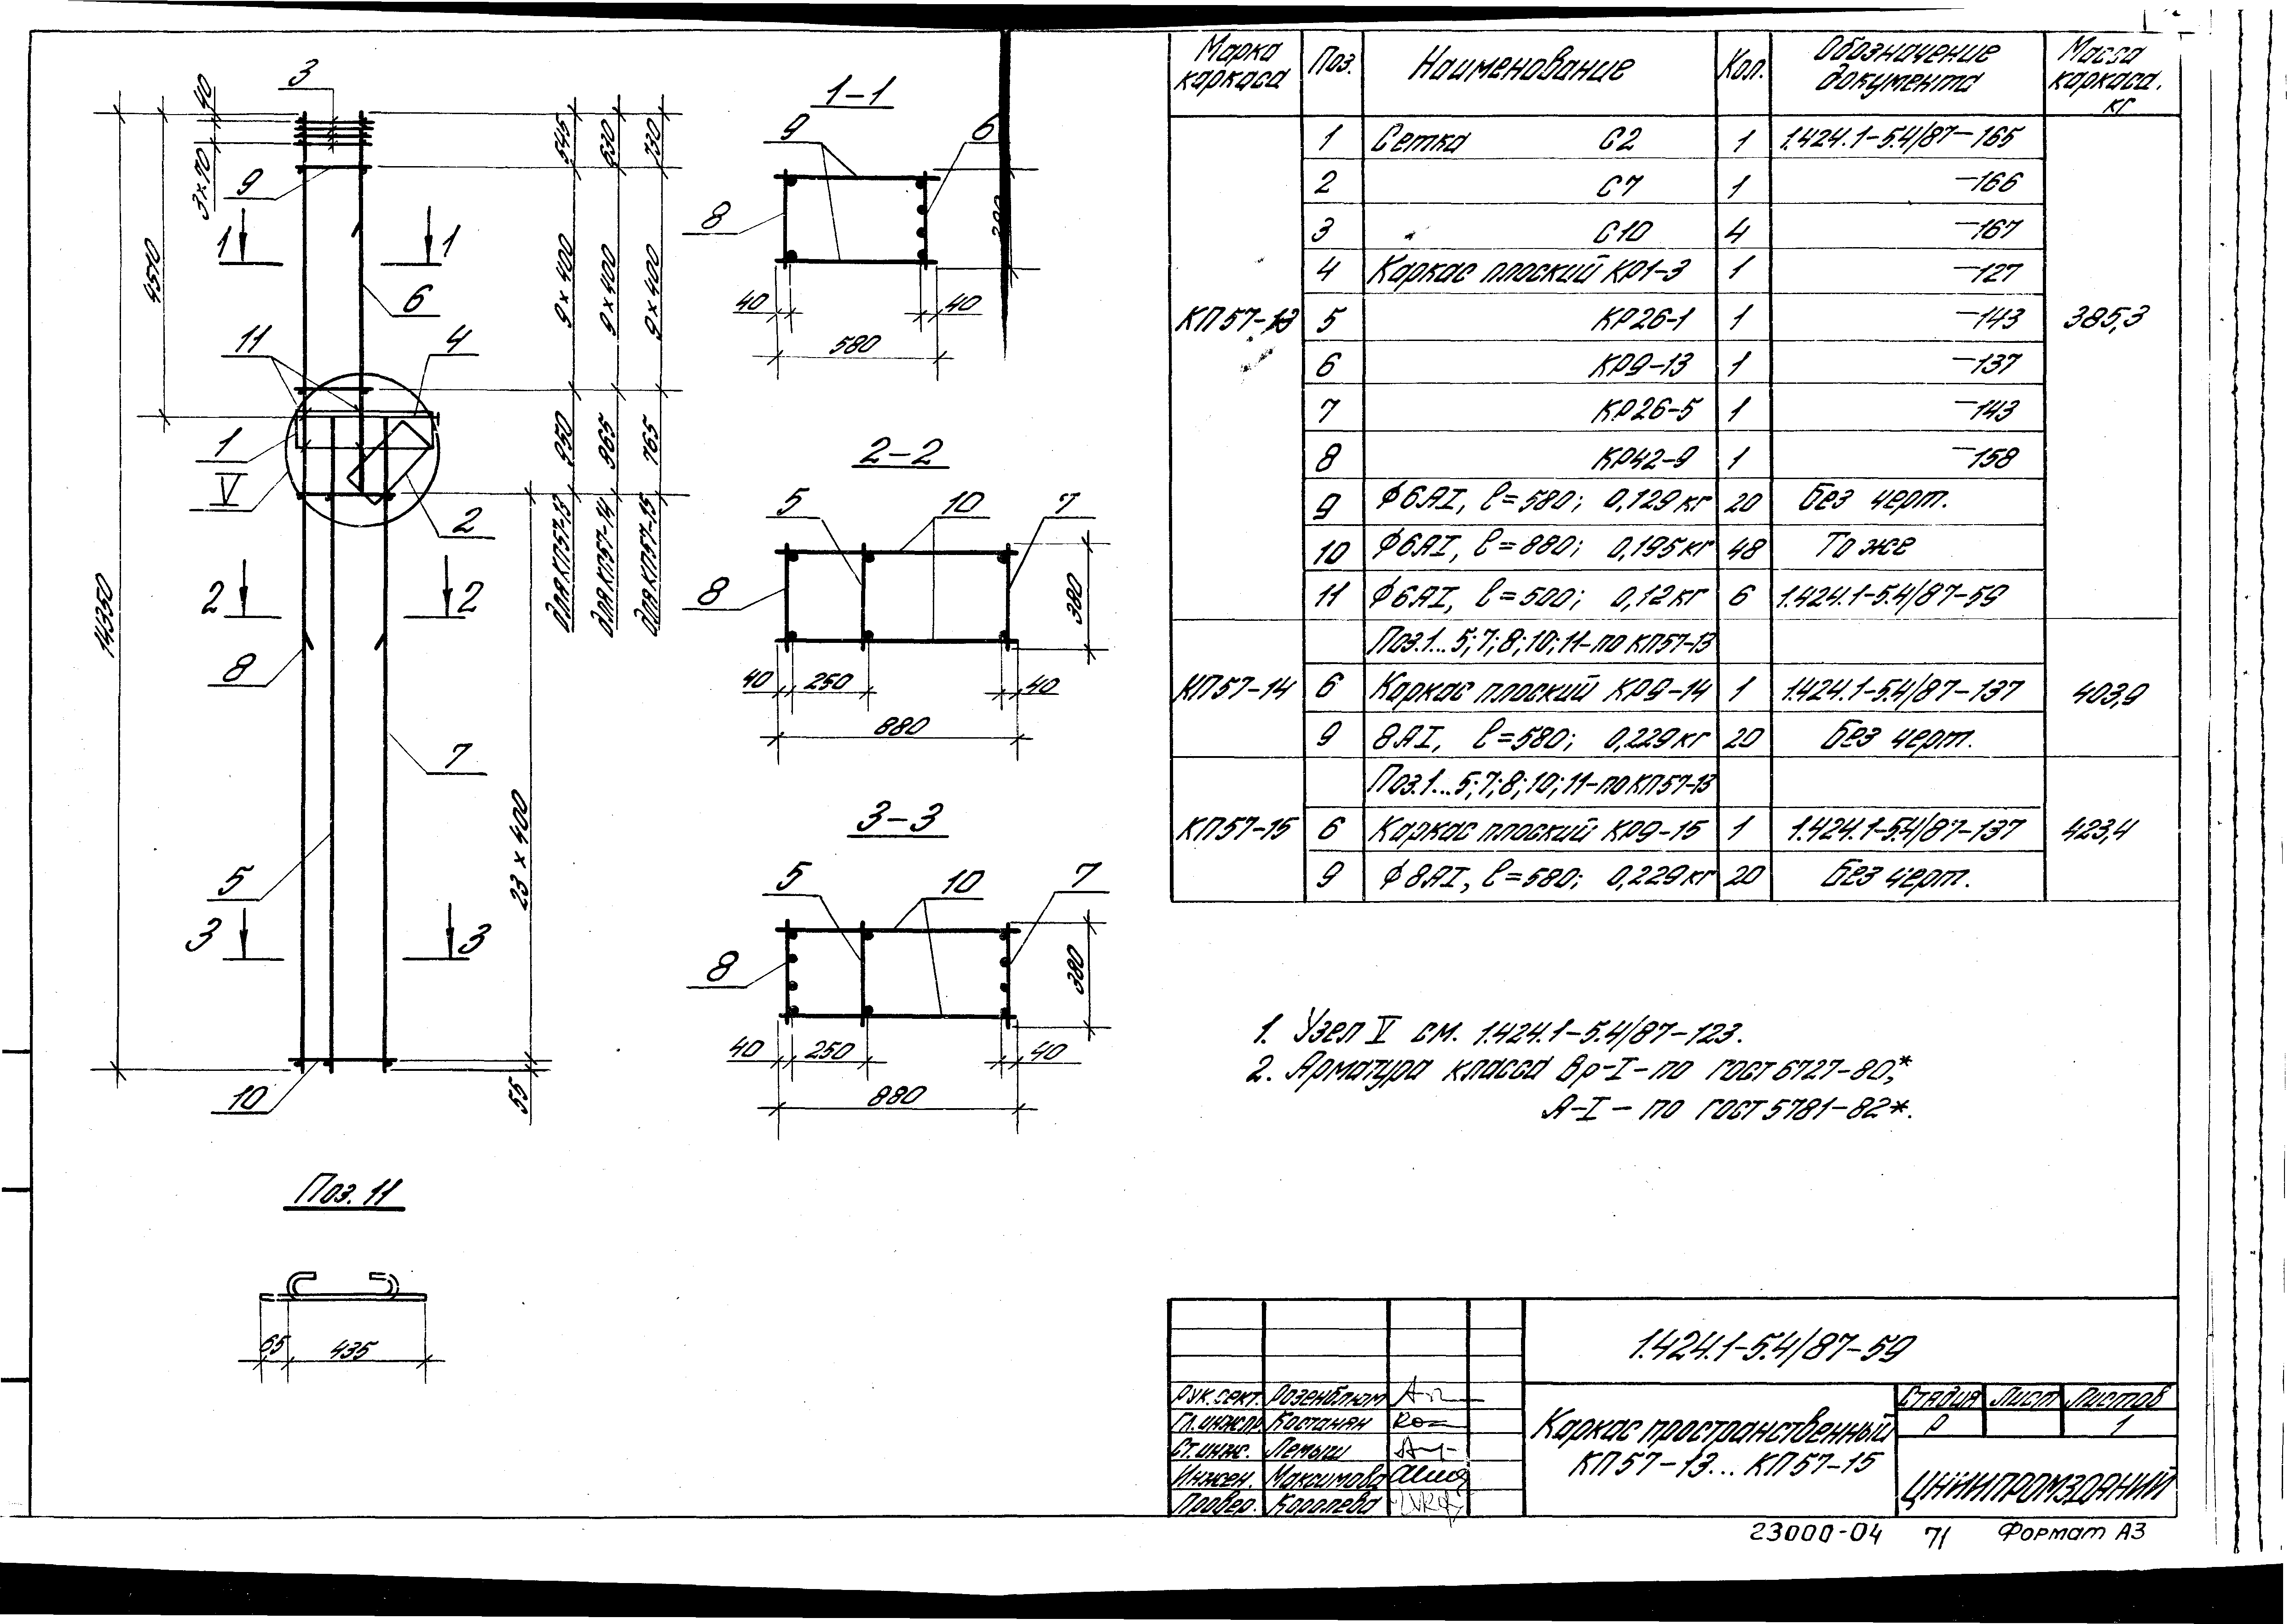 3
40
3×70
9
1 1
4510
6
11
4
1
V
2
2 2
14350
8
7
5
3 3
10
23 × 400
55
545
630
730
9×400
9×400
9×400
950
865
765
для КП57-13
для КП57-14
для КП57-15
1-1
9
6
8
380
40
40
580
2-2
5
10
7
8
380
40
250
40
880
3-3
5
10
7
8
380
40
250
40
880
Поз. 11
65
435
Марка каркаса Поз. Наименование Кол. Обозначение документа Масса каркаса, кг
КП57-13 385,3
1 Сетка С2 1 1.424.1-5.4/87-165
2 С7 1 -166
3 С10 4 -167
4 Каркас плоский КР1-3 1 -127
5 КР26-1 1 -143
6 КР9-13 1 -137
7 КР26-5 1 -143
8 КР42-9 1 -158
9 ϕ6АI, ℓ=580; 0,129кг 20 Без черт.
10 ϕ6АI, ℓ=880; 0,195кг 48 То же
11 ϕ6АI, ℓ=500; 0,12кг 6 1.424.1-5.4/87-59
Поз.1...5;7;8;10;11-по КП57-13
КП57-14 6 Каркас плоский КР9-14 1 1.424.1-5.4/87-137 403,9
9 8АI, ℓ=580; 0,229кг 20 Без черт.
Поз.1...5;7;8;10;11-по КП57-13
КП57-15 6 Каркас плоский КР9-15 1 1.424.1-5.4/87-137 423,4
9 ϕ8АI, ℓ=580; 0,229кг 20 Без черт.
1. Узел V см. 1.424.1-5.4/87-123.
2. Арматура класса Вр-I-по ГОСТ 6727-80,*
А-I - по ГОСТ 5781-82*.
1.424.1-5.4/87-59
Рук.сект. Розенблюм
Гл.инж.пр. Костанян
Ст.инж. Лемыш
Инжен. Максимова
Провер. Королева
Каркас пространственный
КП57-13...КП57-15
Стадия Лист Листов
Р 1
ЦНИИПРОМЗДАНИЙ
23000-04 71 Формат А3